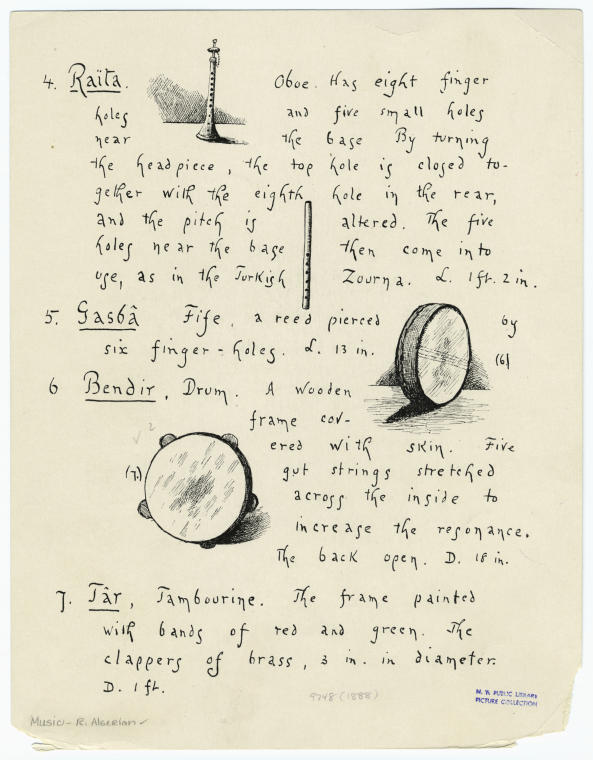 4. Raïta. Oboe. Has eight finger
holes and five small holes
near the base By turning
the headpiece, the top hole is closed to-
gether with the eighth hole in the rear,
and the pitch is altered. The five
holes near the base then come into
use, as in the Turkish Zourna. L. 1ft. 2 in.
5. Gasbâ Fife, a reed pierced by
six finger-holes. L. 13 in.
(6)
6 Bendir, Drum. A wooden
frame cov-
ered with skin. Five
(7.) gut strings stretched
across the inside to
increase the resonance.
The back open. D. 18 in.
7. Târ, Tambourine. The frame painted
with bands of red and green. The
clappers of brass, 3 in. in diameter.
D. 1 ft.
9748 (1888)
N. Y. PUBLIC LIBRARY
PICTURE COLLECTION
Music - R. Algerian